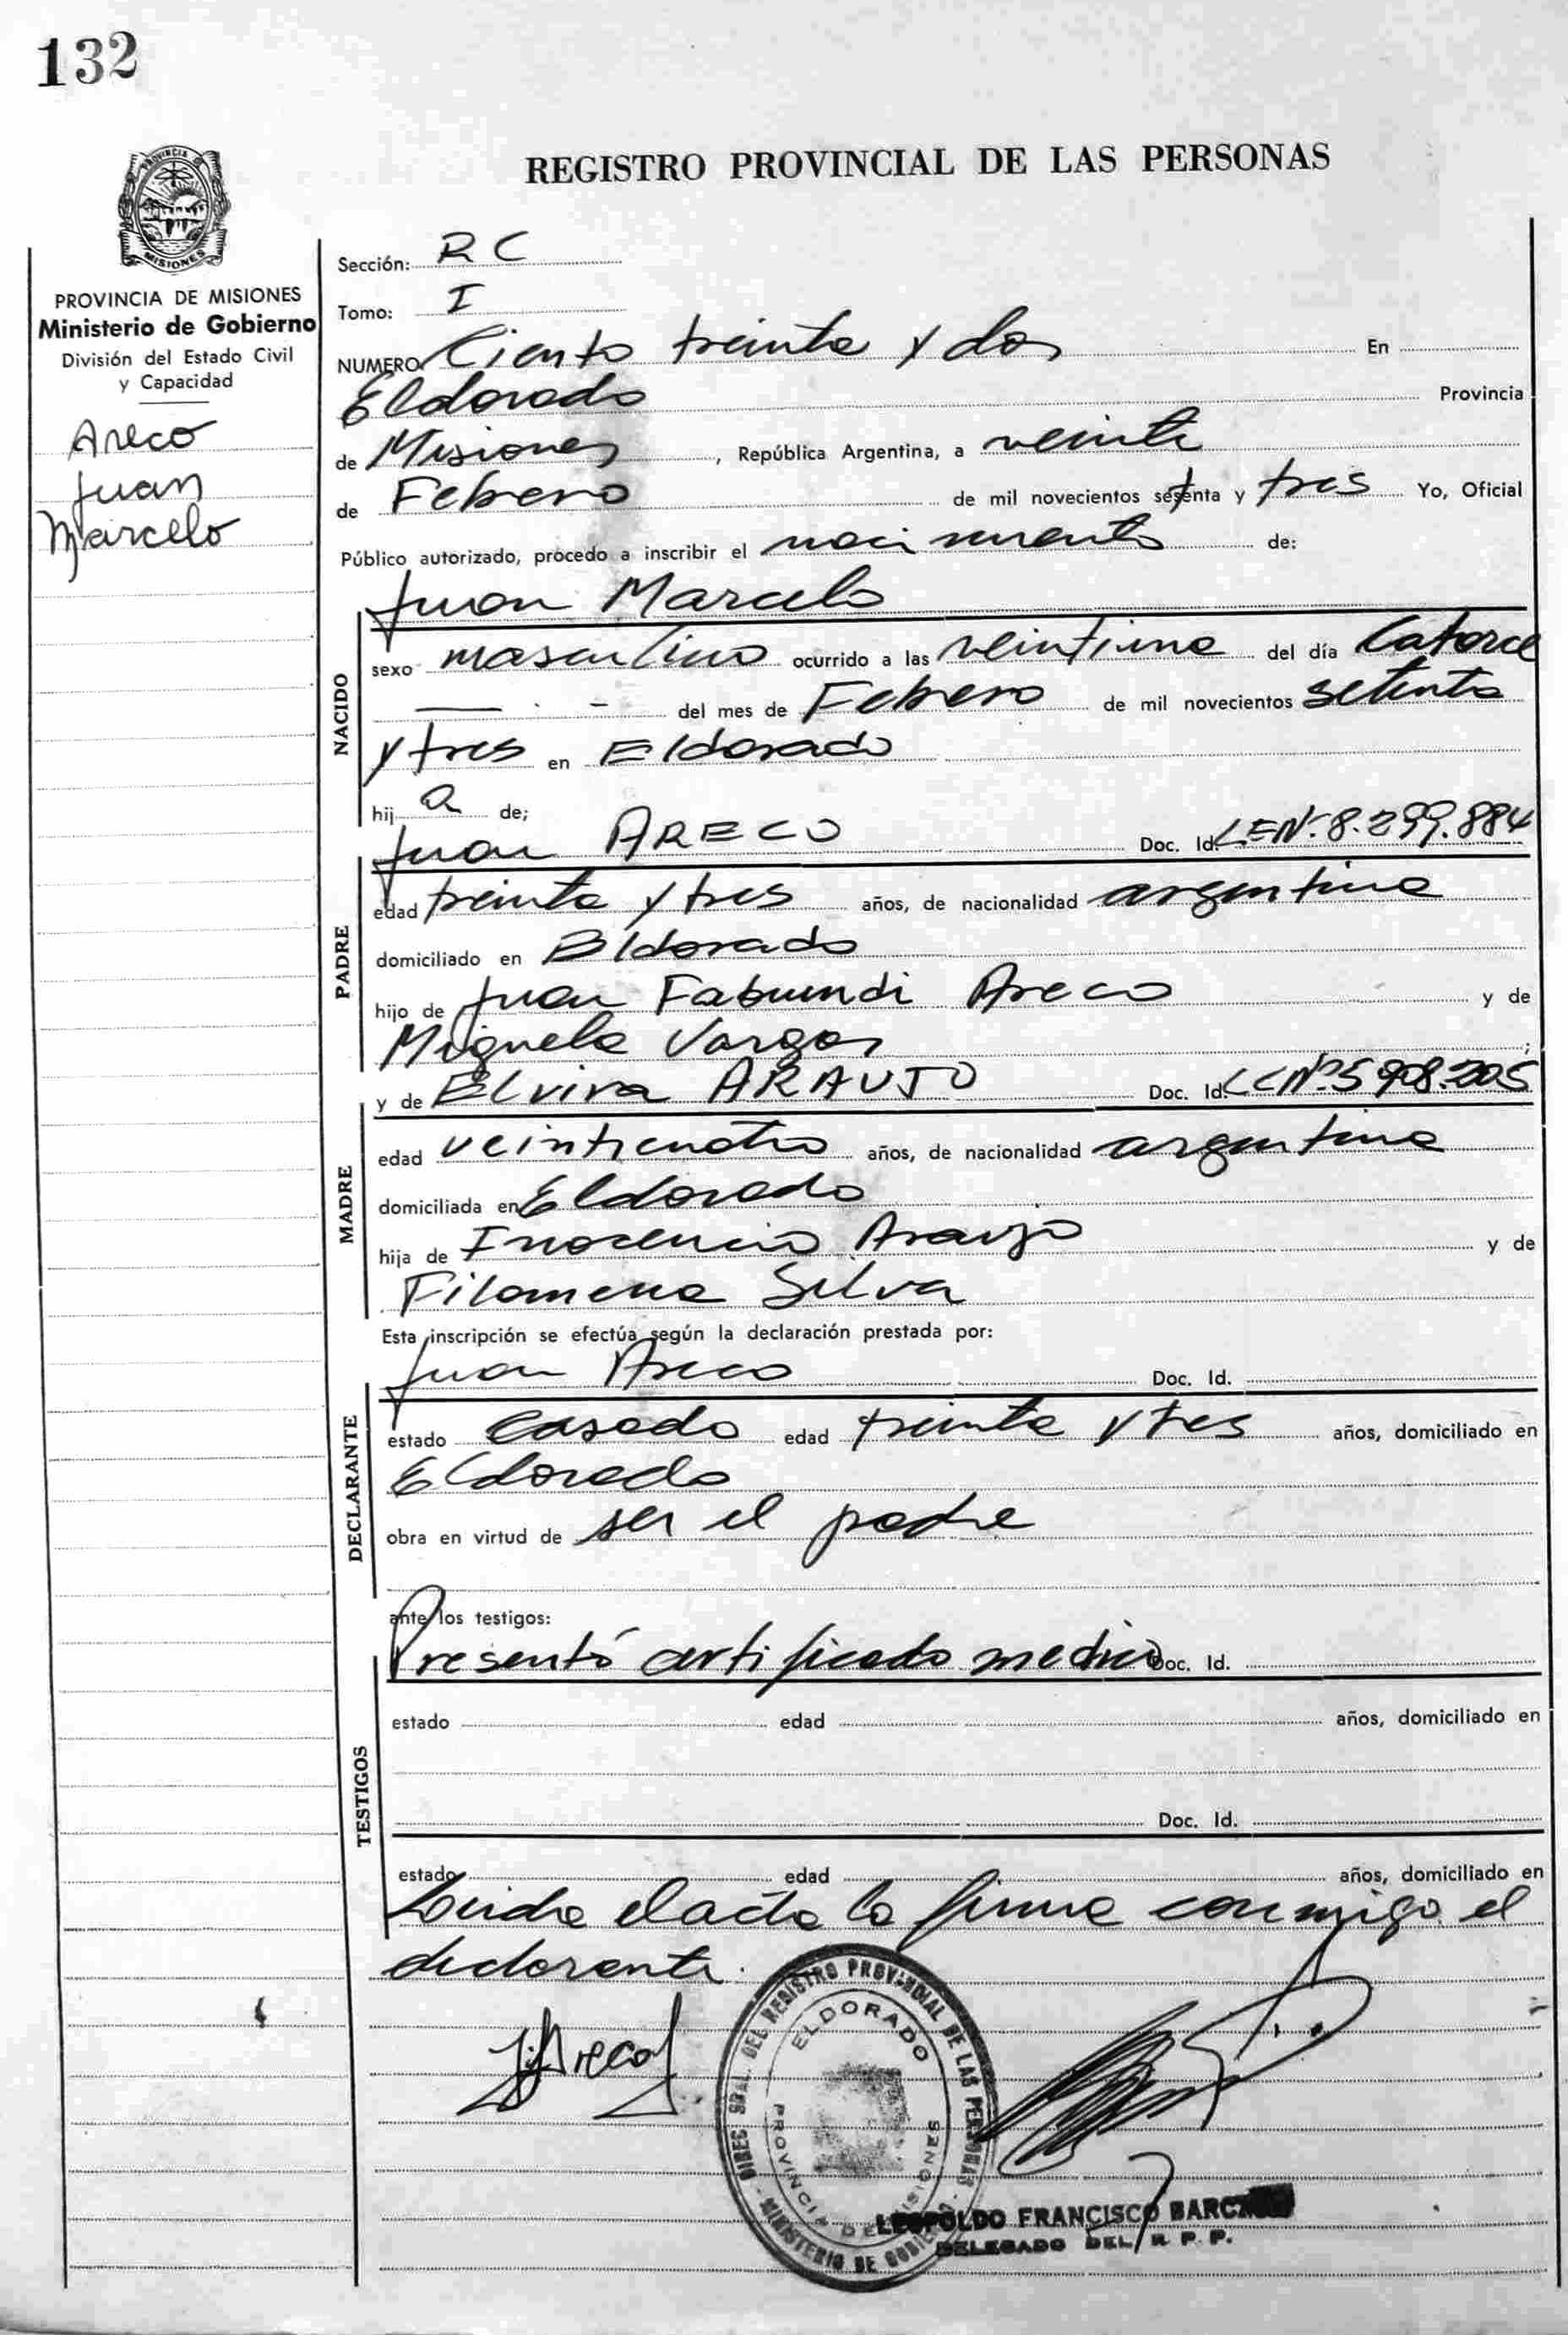 132
REGISTRO PROVINCIAL DE LAS PERSONAS
PROVINCIA
MISIONES
PROVINCIA DE MISIONES
Ministerio de Gobierno
División del Estado Civil
y Capacidad
Areco
Juan
Marcelo
Sección: R C
Tomo: I
NUMERO Ciento treinta y dos En
Eldorado Provincia
de Misiones, República Argentina, a veinte
de Febrero de mil novecientos setenta y tres Yo, Oficial
Público autorizado, procedo a inscribir el nacimiento de:
Juan Marcelo
NACIDO
sexo masculino ocurrido a las veintiuna del día Catorce
del mes de Febrero de mil novecientos setenta
y tres en Eldorado
hij a de;
Juan ARECO Doc. Id. LEN° 8.299.884
PADRE
edad treinta y tres años, de nacionalidad argentina
domiciliado en Eldorado
hijo de Juan Areco y de
Miguela Vargas;
y de Elvira ARAUJO Doc. Id. LCN° 5.908.205
MADRE
edad veinticuatro años, de nacionalidad argentina
domiciliada en Eldorado
hija de Inocencio Araujo y de
Filomena Silva
Esta inscripción se efectúa según la declaración prestada por:
Juan Areco Doc. Id.
DECLARANTE
estado casado edad treinta y tres años, domiciliado en
Eldorado
obra en virtud de ser el padre
ante los testigos:
Presentó certificado medico Doc. Id.
TESTIGOS
estado edad años, domiciliado en
Doc. Id.
estado edad años, domiciliado en
Leida el acta la firma conmigo el
declarante.
J. Areco
DIREC. GRAL. DEL REGISTRO PROVINCIAL DE LAS PERSONAS
ELDORADO
PROVINCIA DE MISIONES
MINISTERIO DE GOBIERNO
LEOPOLDO FRANCISCO
DELEGADO DEL R. P. P.